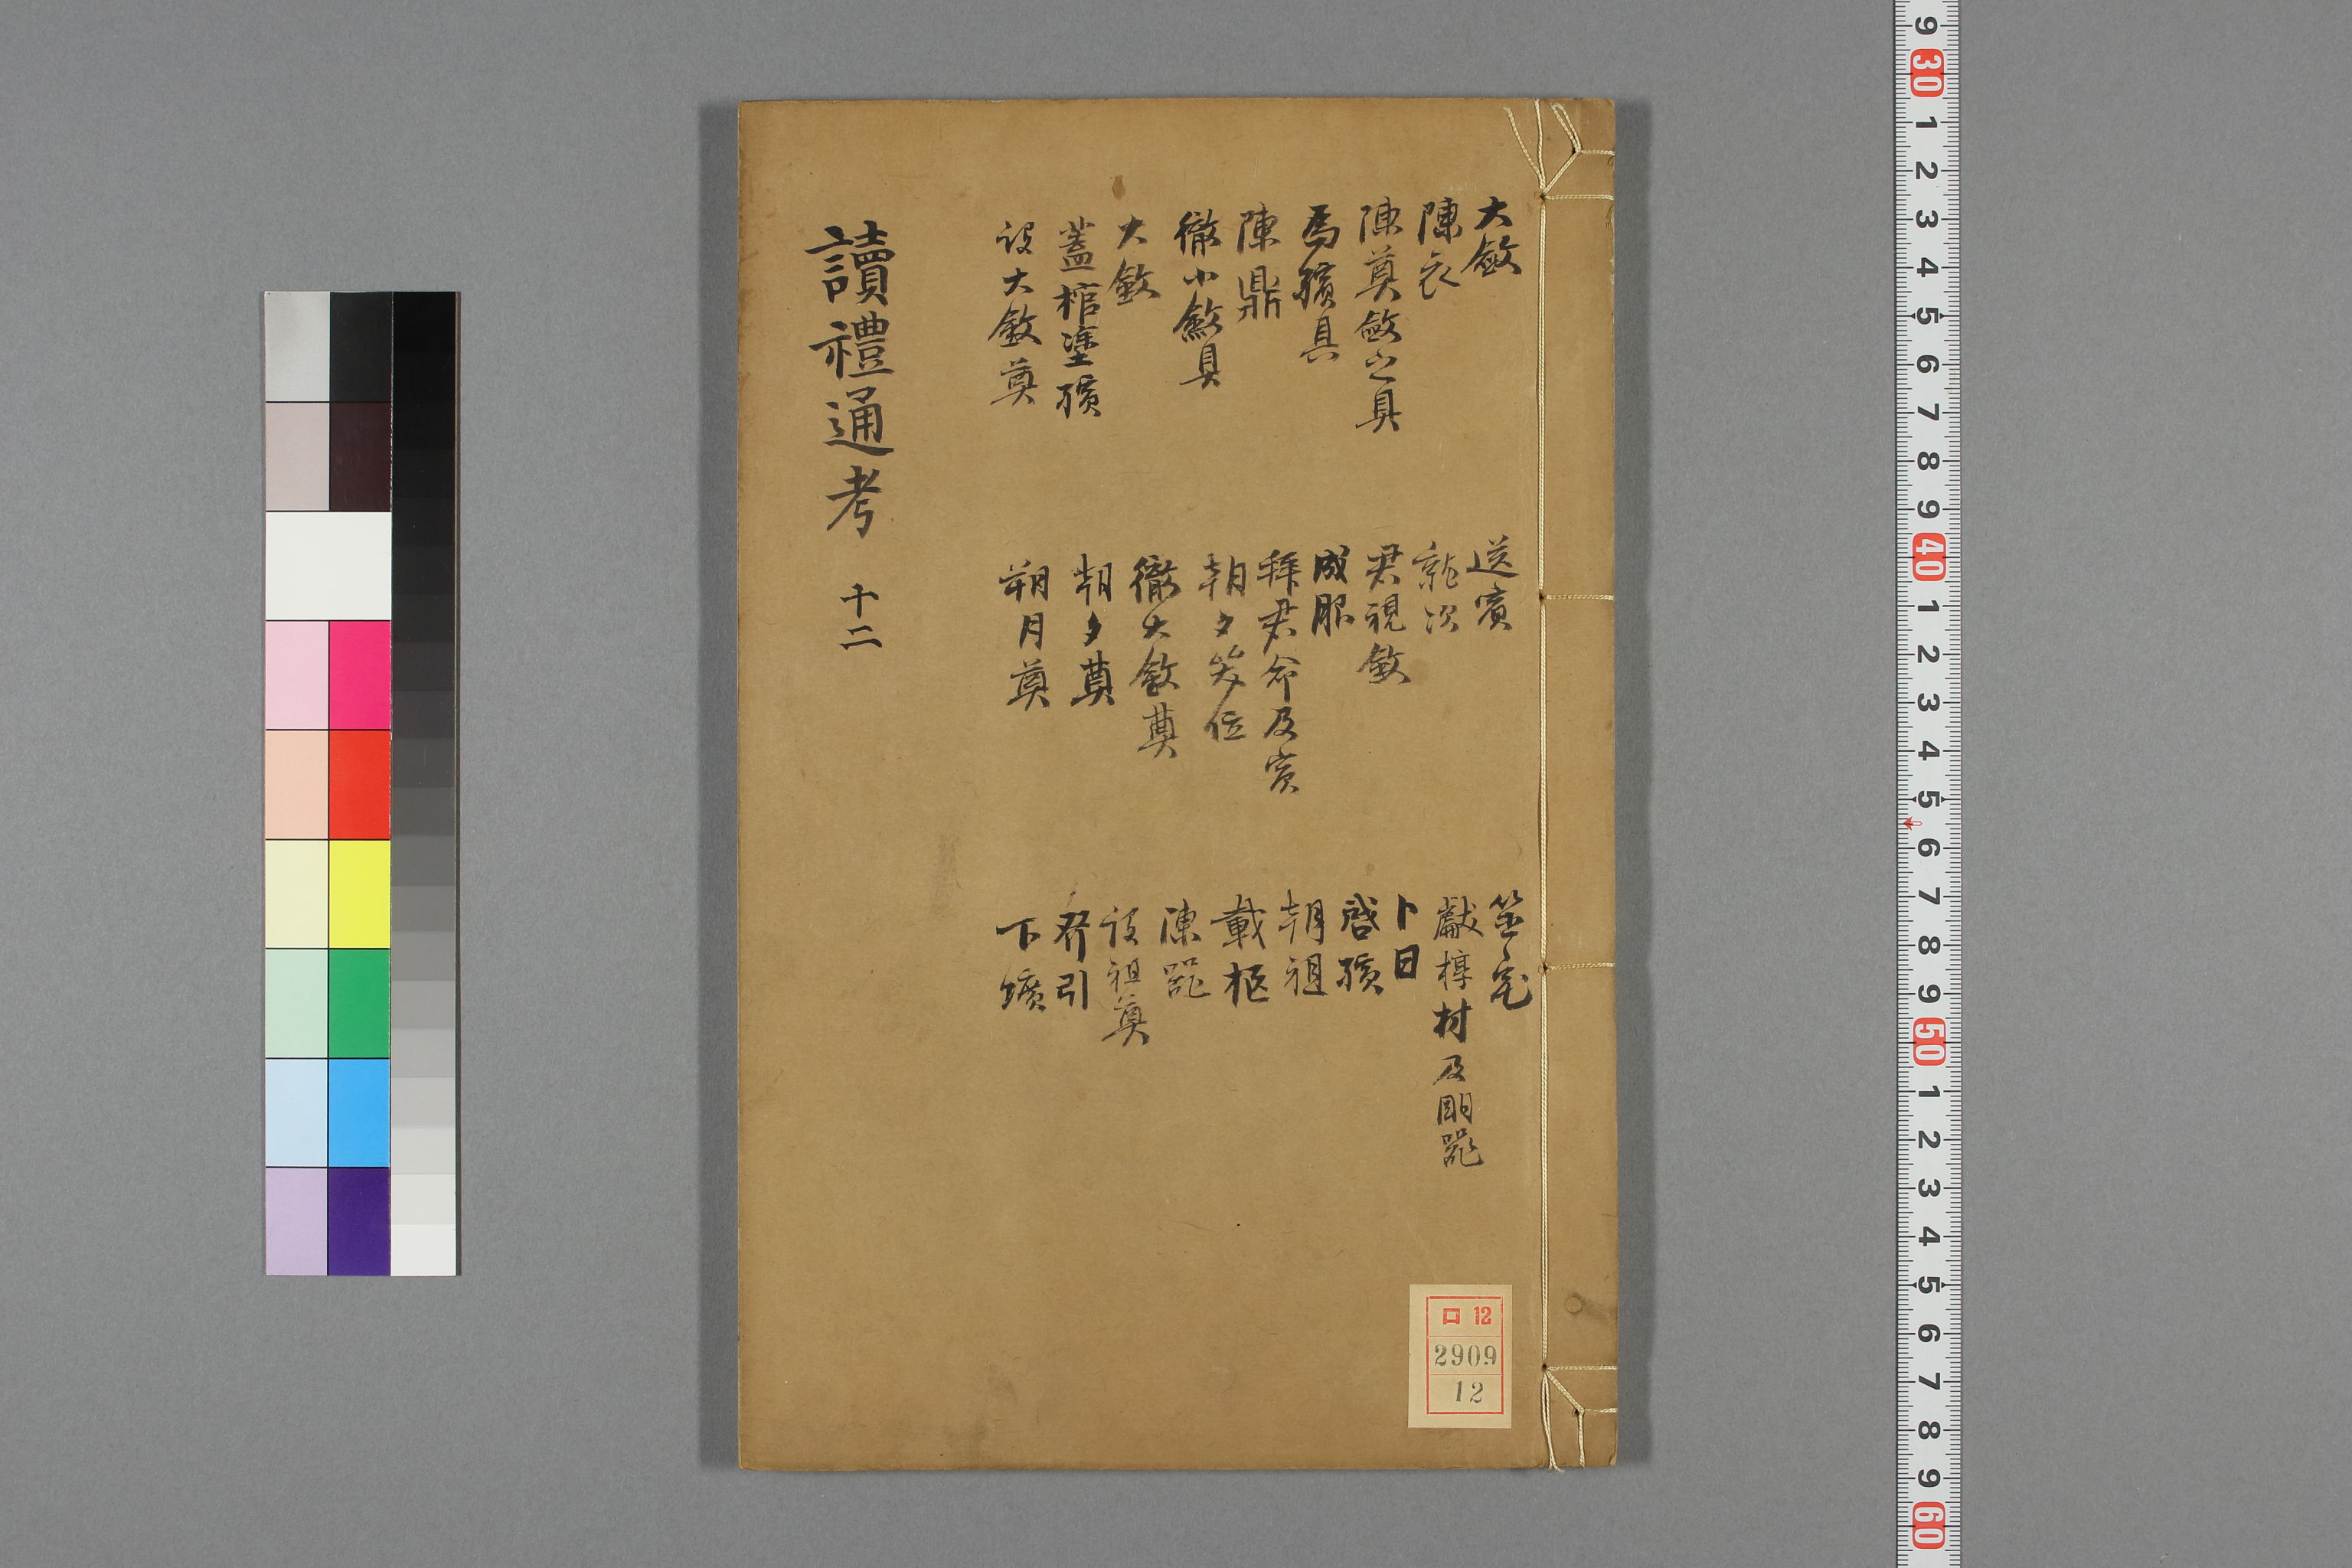 大斂
陳衣
陳奠斂之具
爲殯具
陳鼎
徹小斂具
大斂
蓋棺塗殯
設大斂奠
送賓
就次
君視斂
成服
拜君命及賓
朝夕哭位
徹大斂奠
朝夕奠
朔月奠
筮宅
獻椁材及明器
卜日
啓殯
朝祖
載柩
陳器
設祖奠
發引
下壙
讀禮通考 十二
口 12
2909
12
9 30 1 2 3 4 5 6 7 8 9 40 1 2 3 4 5 6 7 8 9 50 1 2 3 4 5 6 7 8 9 60